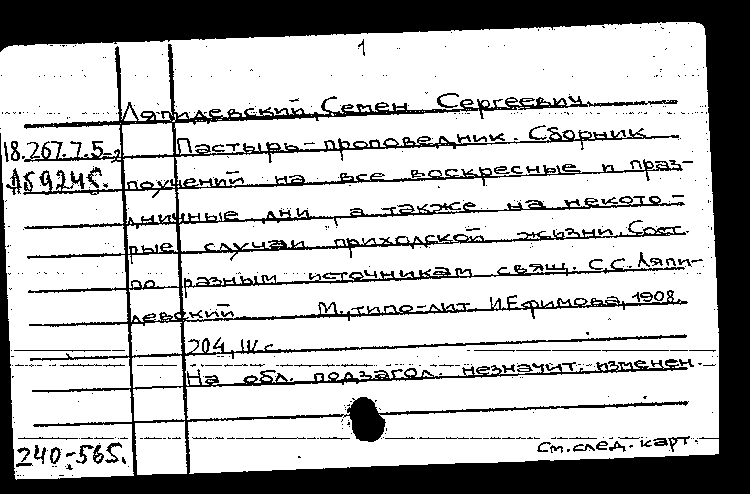 1
Ляпидевский, Семен Сергеевич.
18.267.7.5-2 Пастырь-проповедник. Сборник
А59245. поучений на все воскресные и праз-
дничные дни, а также на некото-
рые случаи приходской жизни. Сост.
по разным источникам свящ. С.С. Ляпи-
девский. М., типо-лит. И.Ефимова, 1908.
204, IV с.
На обл. подзагол. незначит. изменен.
240-565. См. след. карт.